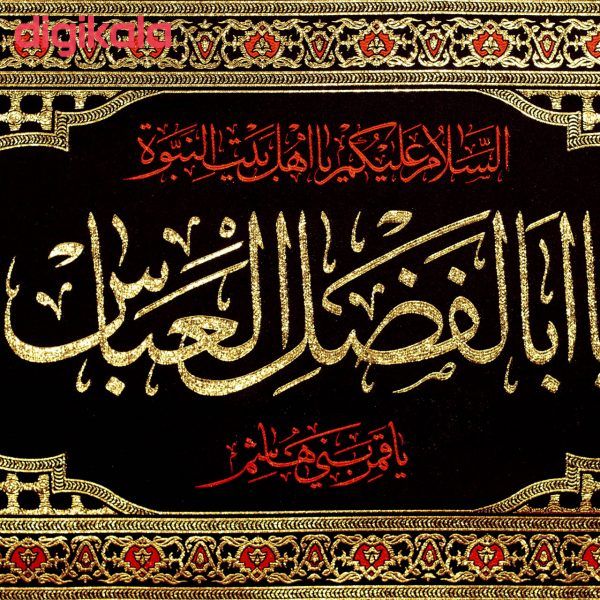 digikala
السَّلامُ عَلَيْكُمْ يا اَهْلَ بَيْتِ النَّبُوَّةِ
يا اَبَا الْفَضْلِ الْعَبّاسِ
يا قَمَرَ بَني هاشِمٍ